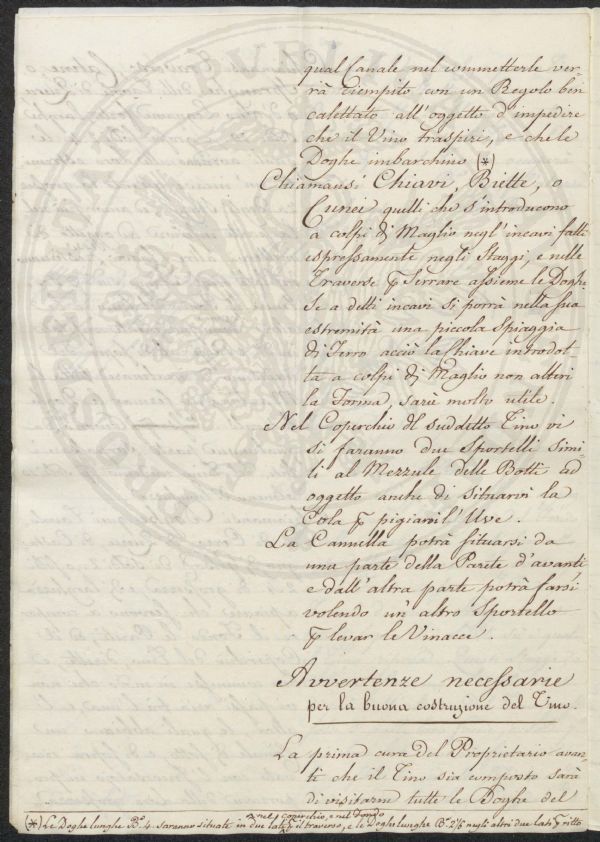 qual Canale nel commetterle ver-
rà riempito con un Regolo ben
calettato all'oggetto d'impedire
che il Vino traspiri, e che le
Doghe imbarchino (*)
Chiamansi Chiavi, Biette, o
Cunei quelli che s'introducono
a colpi di Maglio negl'incavi fatti
espressamente negli Staggi, e nelle
Traverse p serrare assieme le Doghe
Se a detti incavi si porrà nella sua
estremità una piccola spiaggia
di Ferro acciò la Chiave introdot-
ta a colpi di Maglio non alteri
la Forma, sarà molto utile.
Nel Coperchio del suddetto Tino vi
si faranno due Sportelli simi-
li al Mezzule delle Botti ad
oggetto anche di situarvi la
Tola p pigiarvi l'Uve.
La Cannella potrà situarsi da
una parte della Parete d'avanti,
e dall'altra parte potrà farsi
volendo un altro Sportello
p levar le Vinacce.
Avvertenze necessarie
per la buona costruzione del Tino.
La prima cura del Proprietario avan-
ti che il Tino sia composto sarà
di visitarne tutte le Doghe del
nel coperchio, e nel fondo
(*) Le Doghe lunghe B.a 4. saranno situate in due lati p il traverso, e le Doghe lunghe B.a 2⅓ negli altri due lati p ritto